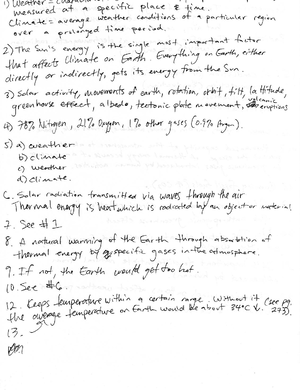 1) Weather =
measured at a specific place & time.
Climate = average weather conditions of a particular region
over a prolonged time period.
2) The Sun's energy, is the single most important factor
that affects Climate on Earth. Everything on Earth, either
directly or indirectly, gets its energy from the Sun.
3) Solar activity, movements of earth, rotation, orbit, tilt, latitude,
greenhouse effect, albedo, tectonic plate movement, volcanic eruptions
4) 78% Nitrogen, 21% Oxygen, 1% other gases (0.9% Argon).
5) a) weather
b) climate
c) weather
d) climate.
6. Solar radiation transmitted via waves through the air
Thermal energy is heat which is radiated by an object or material
7. See #1
8. A natural warming of the Earth through absorbtion of
thermal energy by specific gases in the atmosphere.
9. If not, the Earth would get too hot.
10. See #6
12. Keeps temperature within a certain range. Without it (see pg.
the average temperature on Earth would be about 34°C 273).
13.